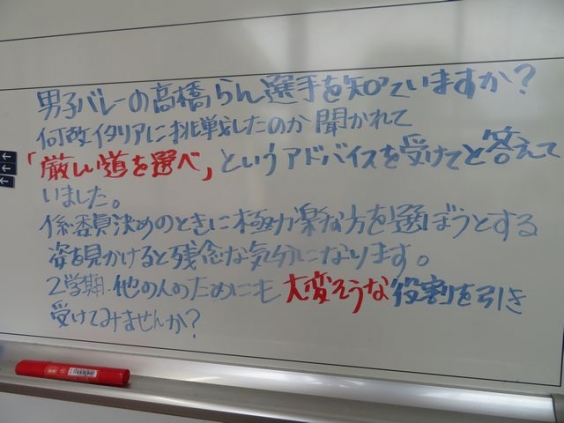 男子バレーの高橋らん選手を知っていますか?
何故イタリアに挑戦したのか聞かれて
「厳しい道を選べ」というアドバイスを受けてと答えて
いました。
係・委員決めのときに極力楽な方を選ぼうとする
姿を見かけると残念な気分になります。
2学期、他の人のためにも大変そうな役割を引き
受けてみませんか?